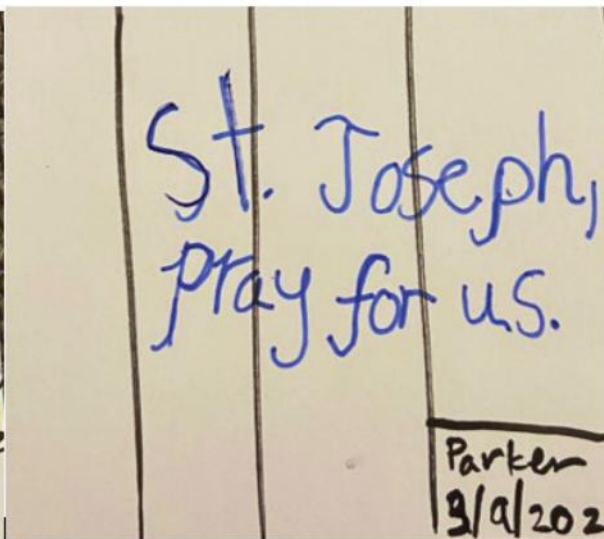 St. Joseph,
pray for us.
Parker
3/9/202